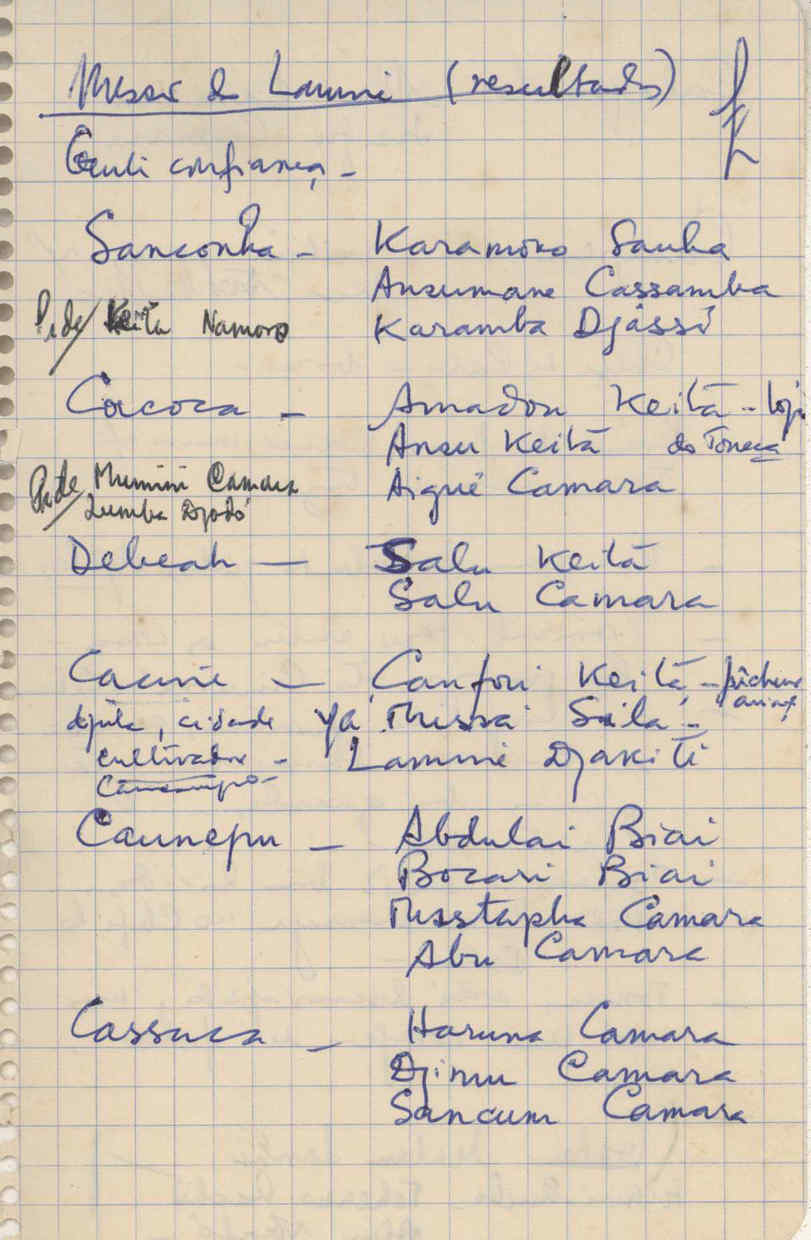 Missão de Lamine (resultados)
Gente confiança -
Sanconha - Karamoko Sanha
Ansumane Cassamba
Pede/ Keita Namoro Karamba Djassi
Cacoca - Amadou Keitã - loja
Ansu Keitã do Toneca
Pede/ Mumini Camara Aiguê Camara
Lumba Djodó
Debeah - Salu Keitã
Salu Camara
Cacine - Canfori Keitã -
djila, cidade Ya Missa Sila -
cultivador - Lamine Djakiti
Caunepu - Abdulai Biai
Bocari Biai
Mustapha Camara
Abu Camara
Cassaca - Haruna Camara
Djimu Camara
Sancum Camara